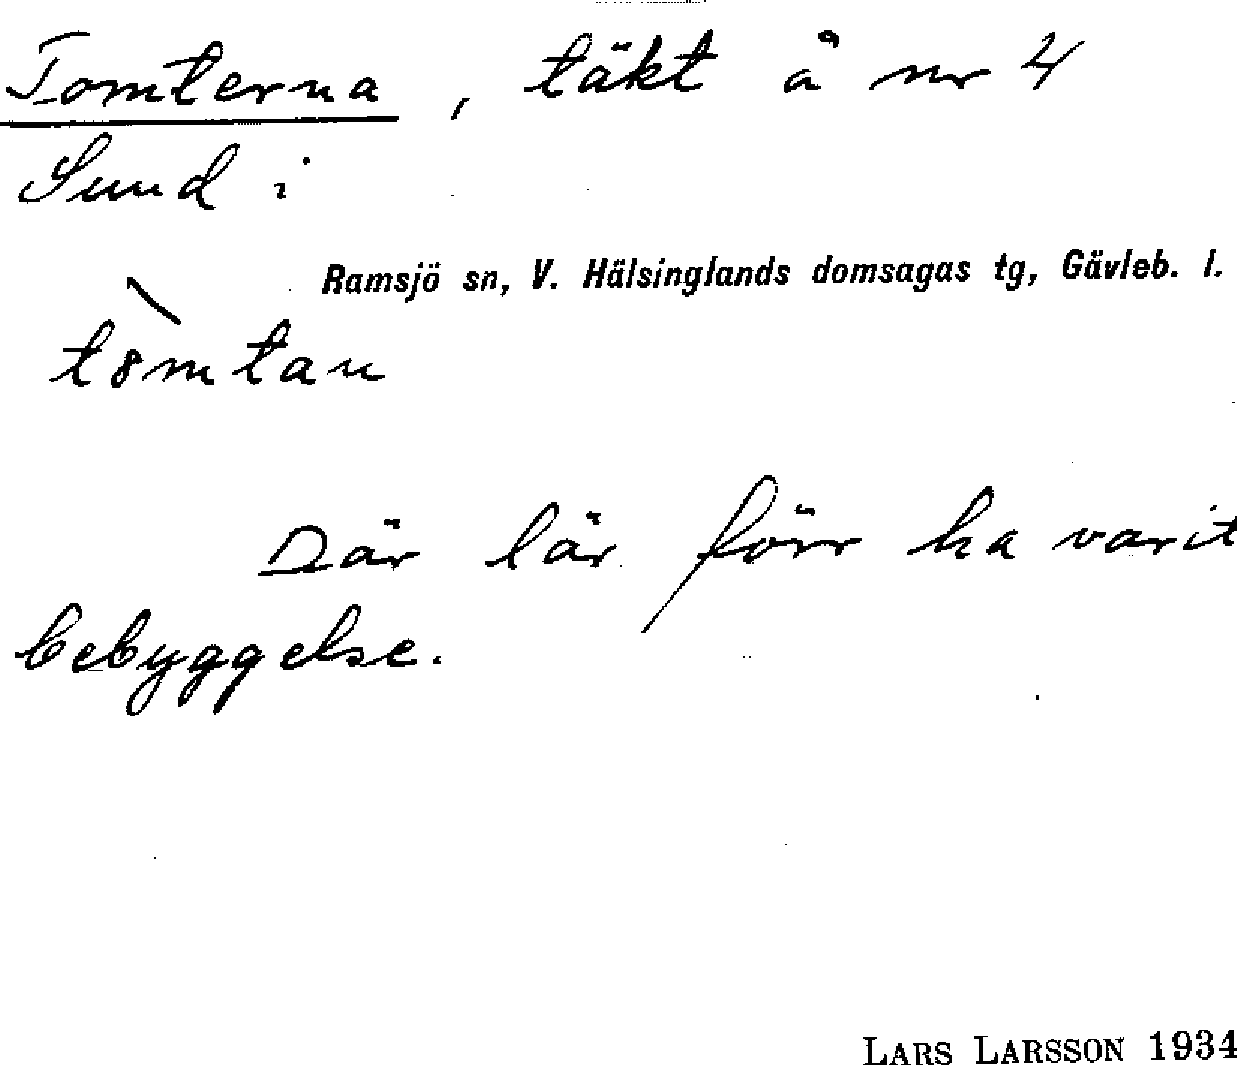 Tomterna, täkt å nr 4
Sund i
Ramsjö sn, V. Hälsinglands domsagas tg, Gävleb. l.
tòmtan
Där lär förr ha varit
bebyggelse.
LARS LARSSON 1934